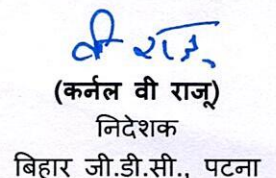 वी राजू
(कर्नल वी राजू)
निदेशक
बिहार जी.डी.सी., पटना